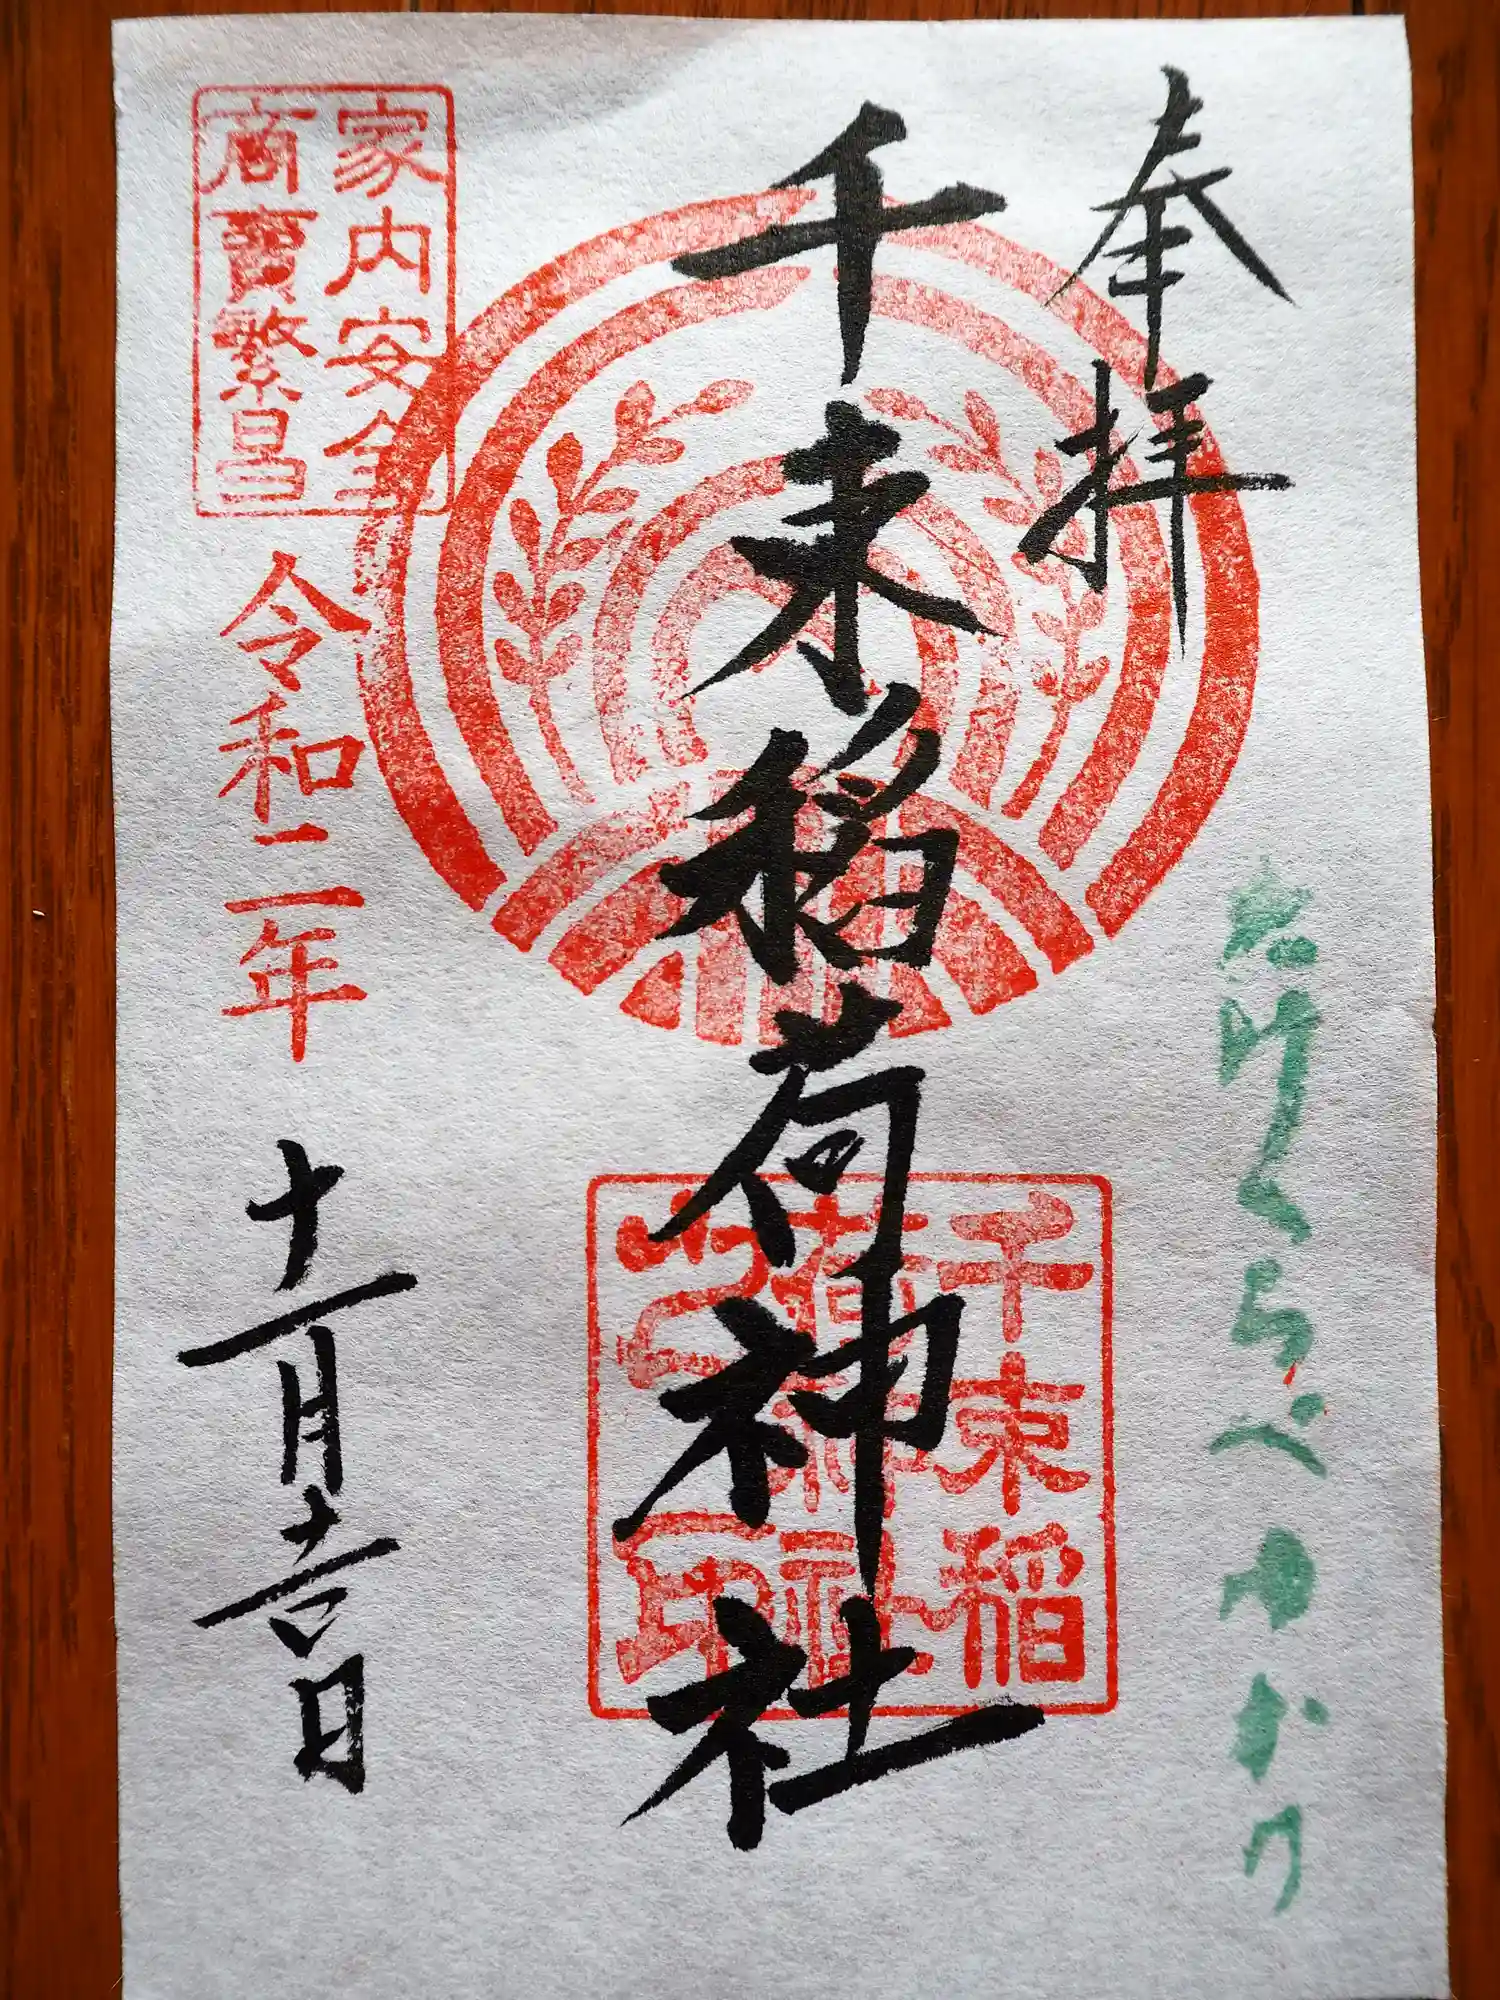 奉拝
たけくらべゆかり
千束稲荷神社
千束稲
荷神社
之印
家内安全
商賣繁昌
令和二年
十一月吉日